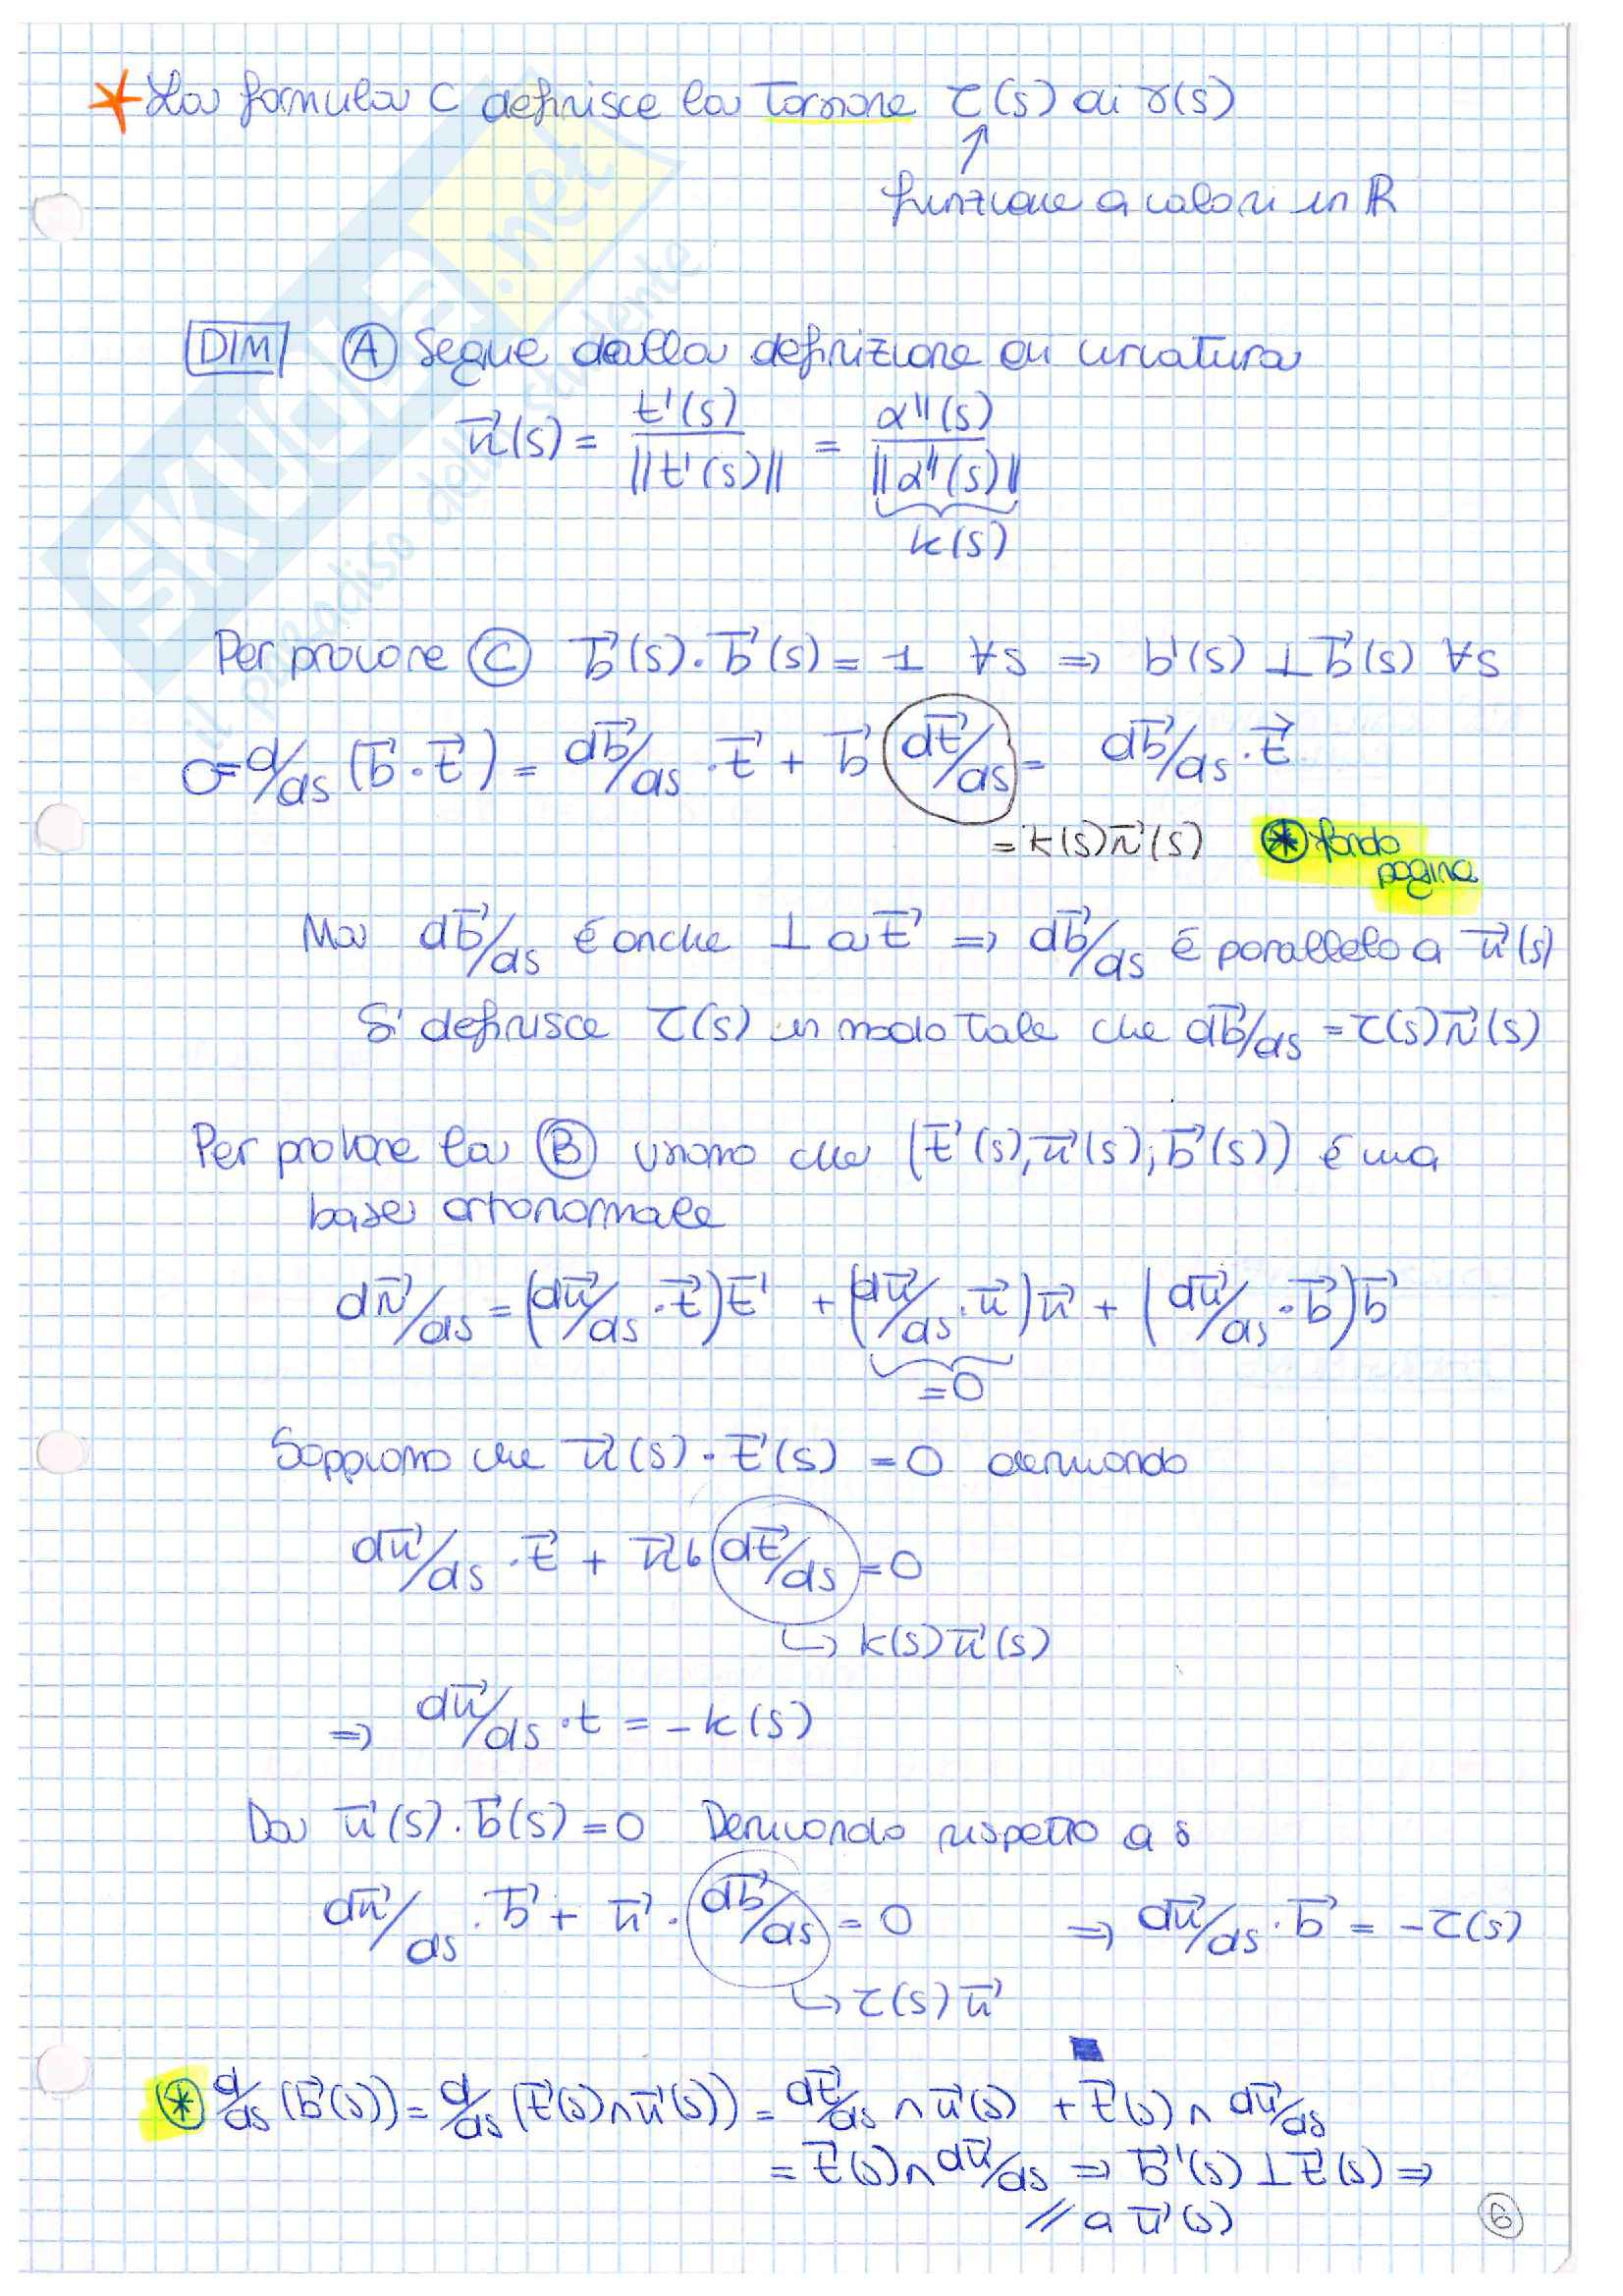 * La formula C definisce la Torsione τ(s) di γ(s)
↑
funzione a valori in ℝ
DIM (A) Segue dalla definizione di curvatura
n⃗(s) = t'(s) / ||t'(s)|| = α''(s) / ||α''(s)||
k(s)
Per provare (C) b⃗(s)·b⃗(s) = 1 ∀s ⇒ b'(s) ⊥ b⃗(s) ∀s
0 = d/ds (b⃗·t⃗) = db⃗/ds · t⃗ + b⃗ dt⃗/ds = db⃗/ds · t⃗
= k(s) n⃗(s) (*) fondo
pagina
Ma db⃗/ds é anche ⊥ a t⃗ ⇒ db⃗/ds é parallelo a n⃗(s)
Si definisce τ(s) in modo tale che db⃗/ds = τ(s) n⃗(s)
Per provare la (B) usiamo che (t⃗(s), n⃗(s), b⃗(s)) é una
base ortonormale
dn⃗/ds = (dn⃗/ds · t⃗) t⃗ + (dn⃗/ds · n⃗) n⃗ + (dn⃗/ds · b⃗) b⃗
= 0
Sappiamo che n⃗(s) · t⃗(s) = 0 derivando
dn⃗/ds · t⃗ + n⃗ · dt⃗/ds = 0
↳ k(s) n⃗(s)
⇒ dn⃗/ds · t = -k(s)
Da n⃗(s) · b⃗(s) = 0 Derivando rispetto a s
dn⃗/ds · b⃗ + n⃗ · db⃗/ds = 0 ⇒ dn⃗/ds · b⃗ = -τ(s)
↳ τ(s) n⃗
(*) d/ds (b⃗(s)) = d/ds (t⃗(s) ∧ n⃗(s)) = dt⃗/ds ∧ n⃗(s) + t⃗(s) ∧ dn⃗/ds
= t⃗(s) ∧ dn⃗/ds ⇒ b⃗'(s) ⊥ t⃗(s) ⇒
// a n⃗(s)
6
SKUOLA.net
il paradiso dello studente